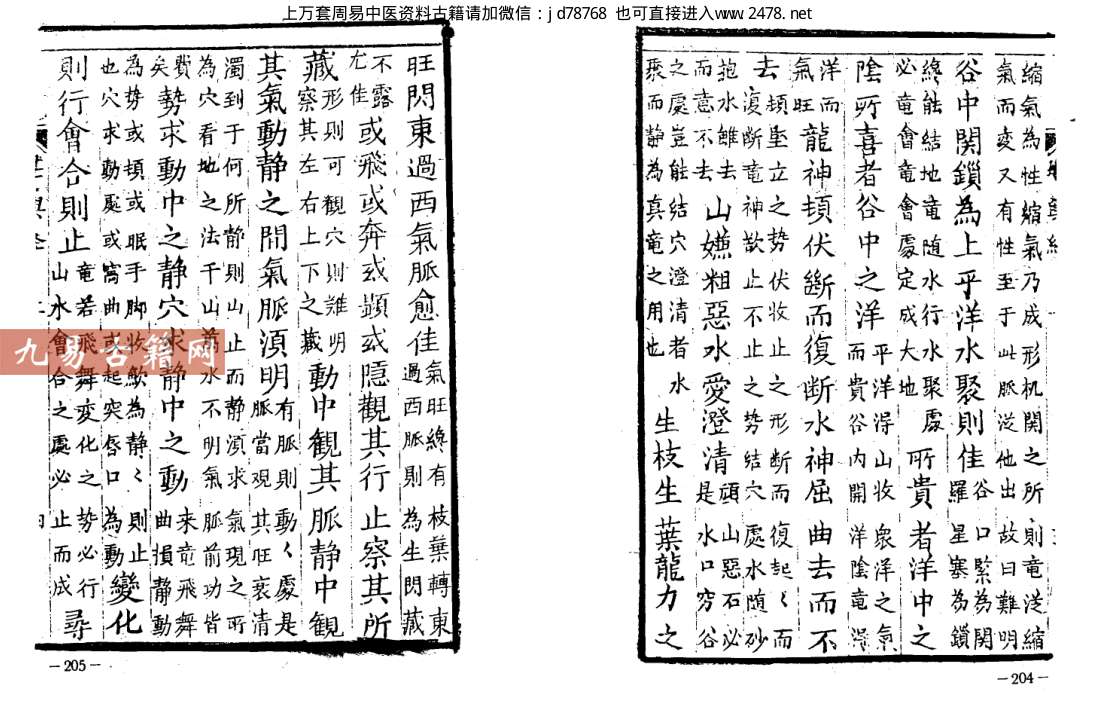 上万套周易中医资料古籍请加微信：jd78768 也可直接进入www.2478.net
縮氣為性縮氣乃成形机関之所則竜逆縮
氣而変又有性至于此脈逆他出故曰難明
谷中関鎖為上乎洋水聚則佳谷口緊為関羅星塞為鎖
終能结地竜随水行水聚處必竜會竜會處定成大地所貴者洋中之
陰所喜者谷中之洋平洋得山收衆洋之氣而貴谷内開洋陰竜得
洋而氣旺龍神頓伏斷而復斷水神屈曲去而不
去頓立之势伏收止之形断而復起〻而復断竜神歇止不止之势结穴處水随砂
抱水雖去而意不去山嫌粗惡水愛澄清頑山惡石必是水口穷谷
之處岂能结穴澄清者水聚而静為真竜之用也生枝生葉龍力之
—204—
旺閃東過西氣脈愈佳氣旺終有枝葉轉東過西脈則為生閃藏
不露尤佳或飛或奔或顕或隠觀其行止察其所
藏形則可観穴则難明察其左右上下之藏動中観其脈静中観
其氣動静之間氣脈須明有脈則動〻處是脈當观其旺衰清
濁到于何所静則山止而静須求氣現之所為穴看地之法千山萬水不明氣脈前功皆
費矣勢求動中之静穴求静中之動来竜飛舞曲損静動
為势或頓或眠手脚收歛為静〻則止也穴求動處或窩曲或起突唇口為動變化
則行會合則止竜若飛舞変化之势必行山水會合之處必止而成尋
—205—
九易古籍网